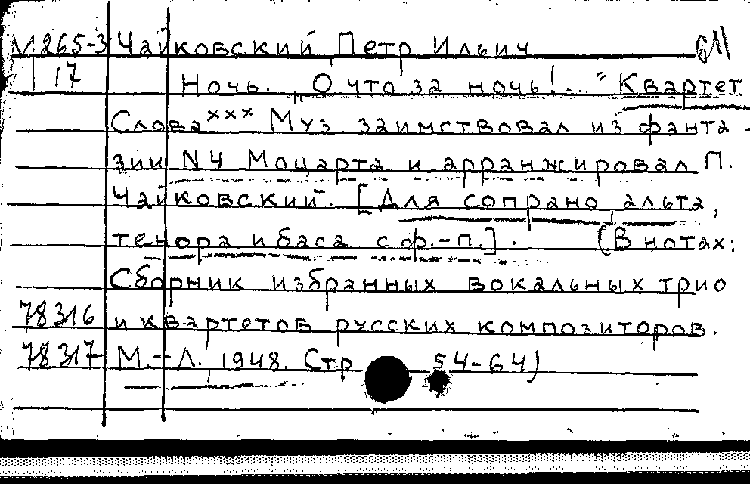 М265-3 Чайковский Петр Ильич
17 Ночь. „О что за ночь!.." Квартет
Слова ххх Муз заимствовал из фанта-
зии N4 Моцарта и арранжировал П.
Чайковский. [Для сопрано, альта,
тенора и баса с ф.-п.]. (В нотах:
Сборник избранных вокальных трио
78316 и квартетов русских композиторов.
78317 М.-Л. 1948. Стр 54-64)